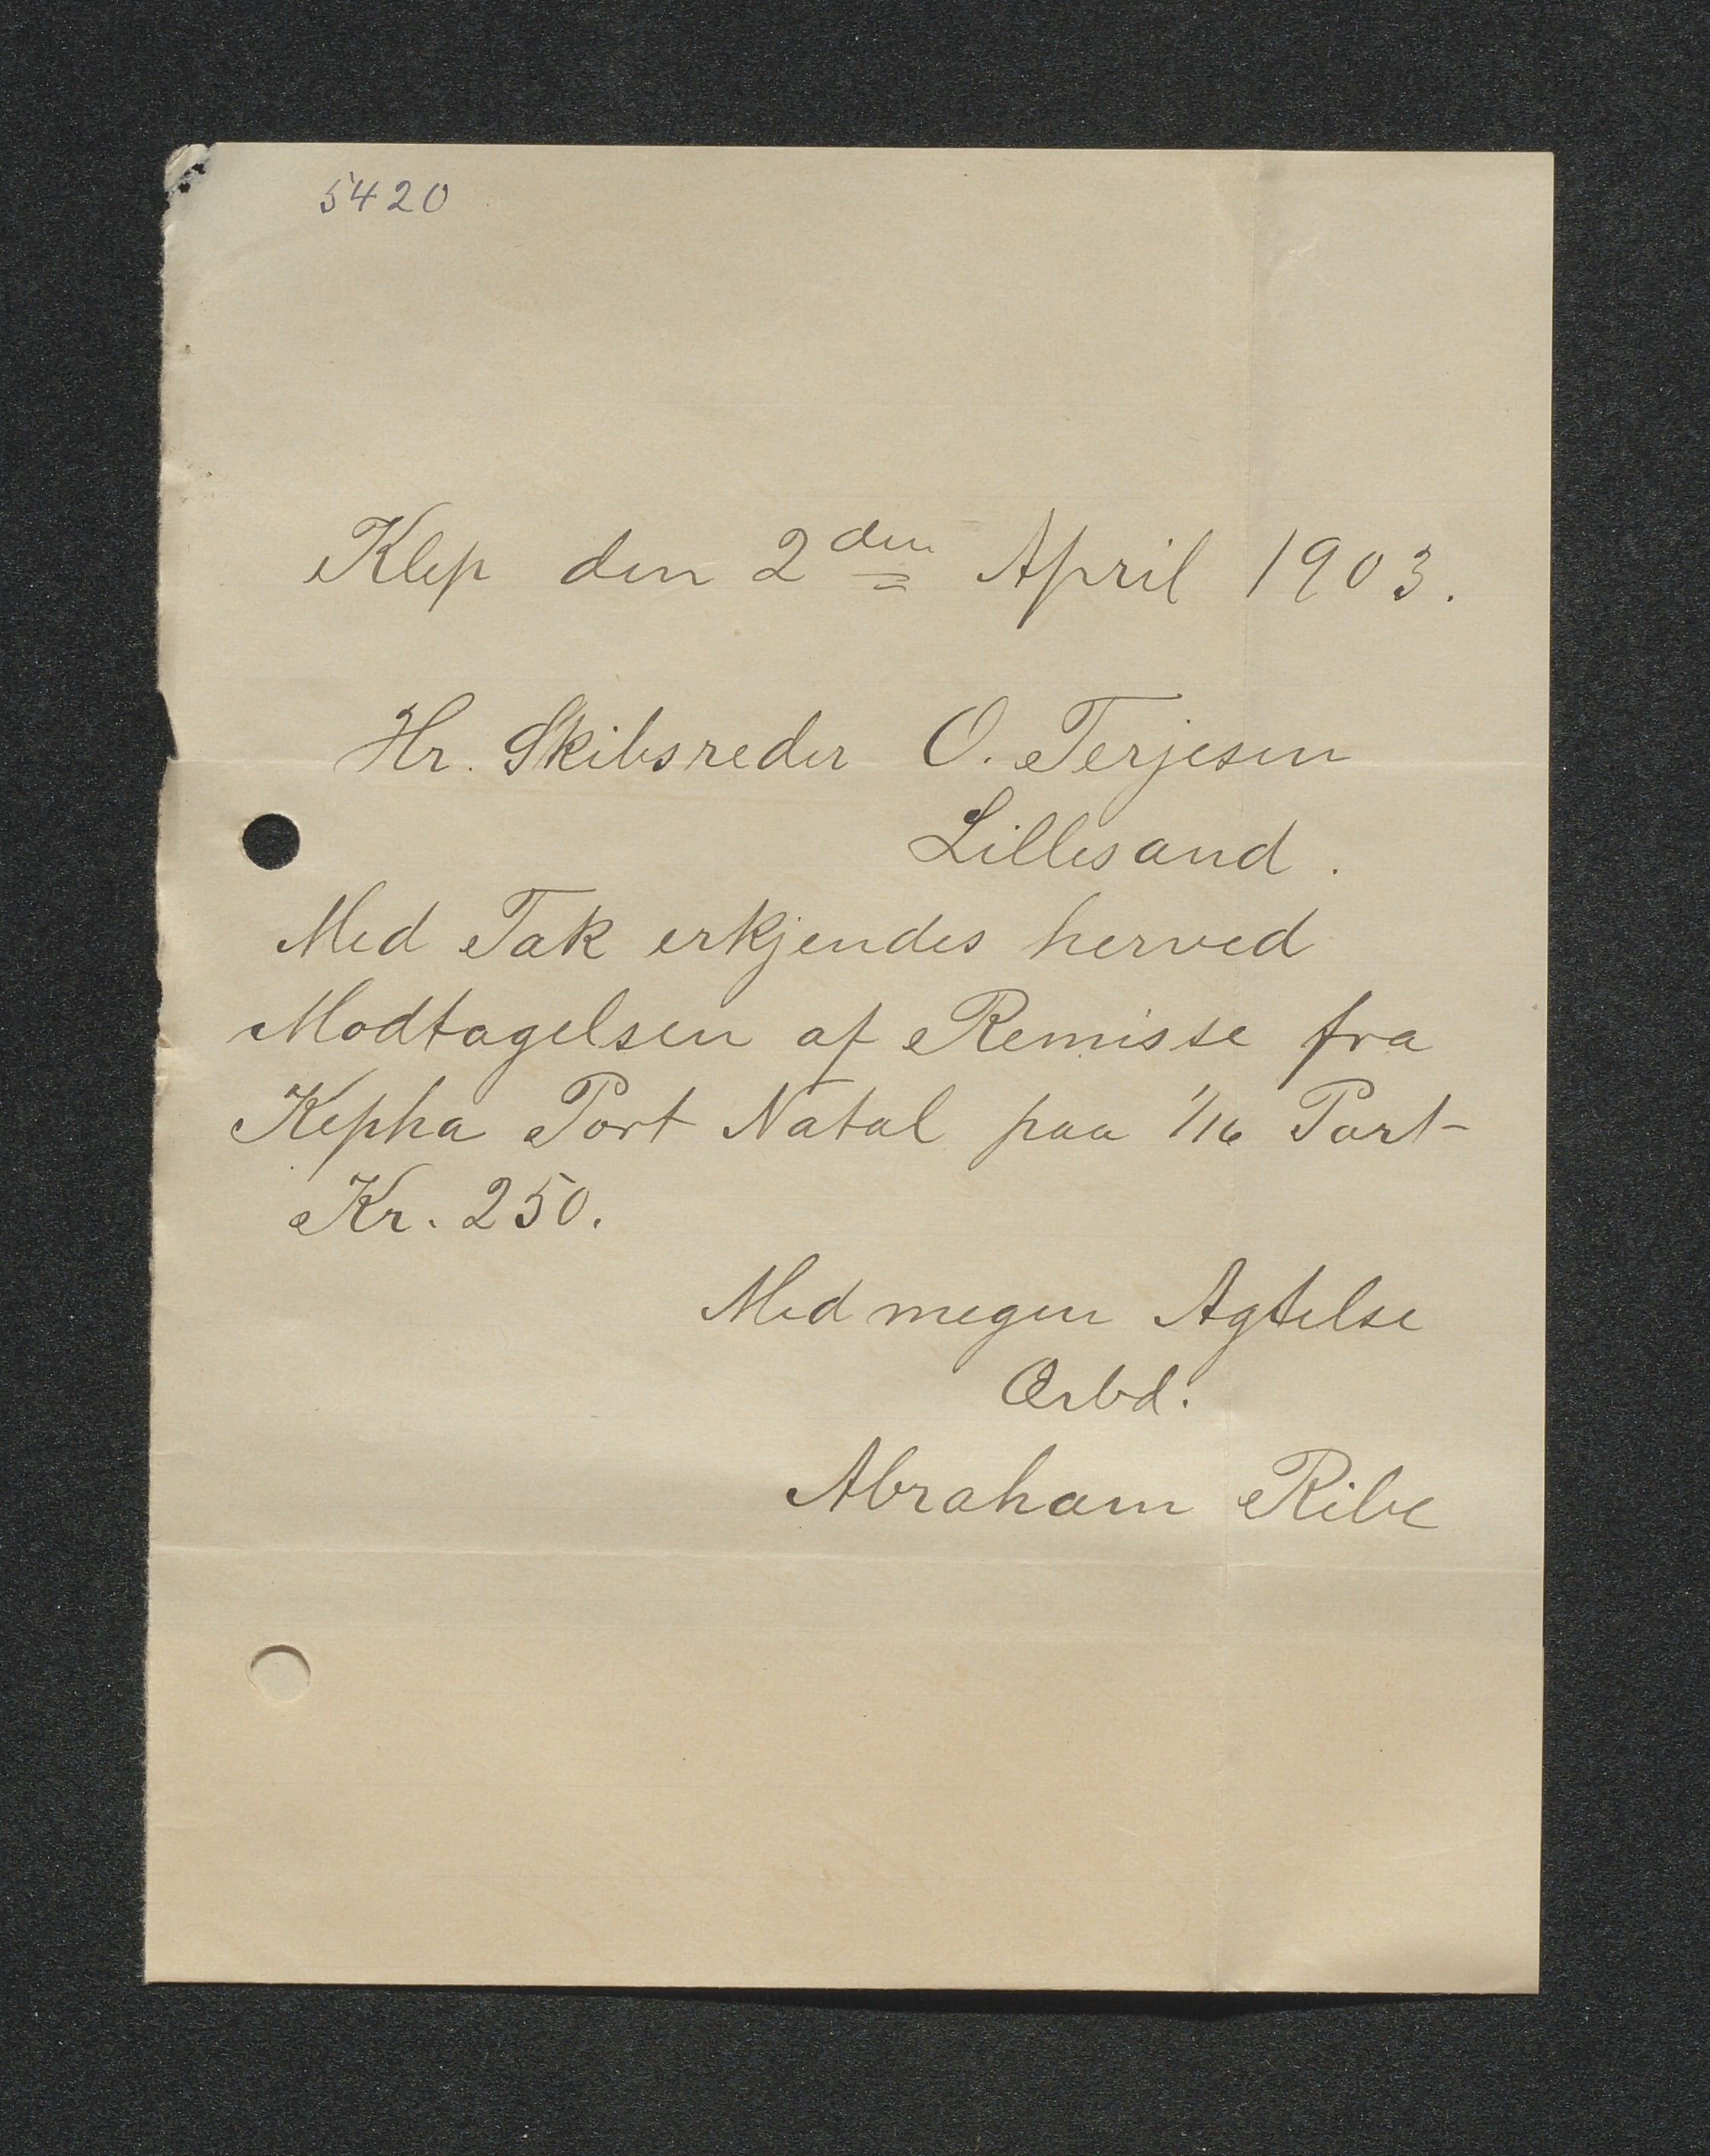 5420
Klep den 2den April 1903.
Hr. Skibsreder O. Terjesen
Lillesand.
Med Tak erkjendes herved
Modtagelsen af Remisse fra
Kepha Port Natal paa 1/16 Part-
Kr. 250.
Med megen Agtelse
Ærbd.
Abraham Ribe